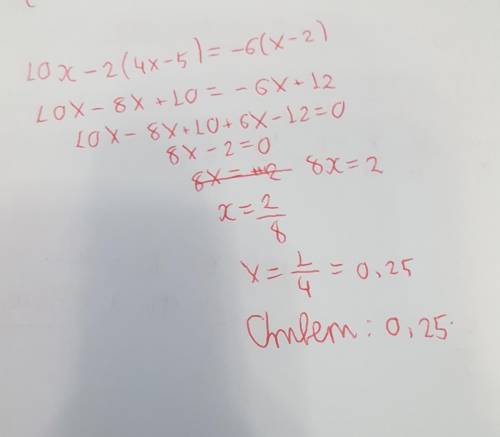 10x - 2(4x-5) = -6(x-2)
10x - 8x + 10 = -6x + 12
10x - 8x + 10 + 6x - 12 = 0
8x - 2 = 0
8x = 2
x = 2/8
x = 1/4 = 0,25
Ответ: 0,25.